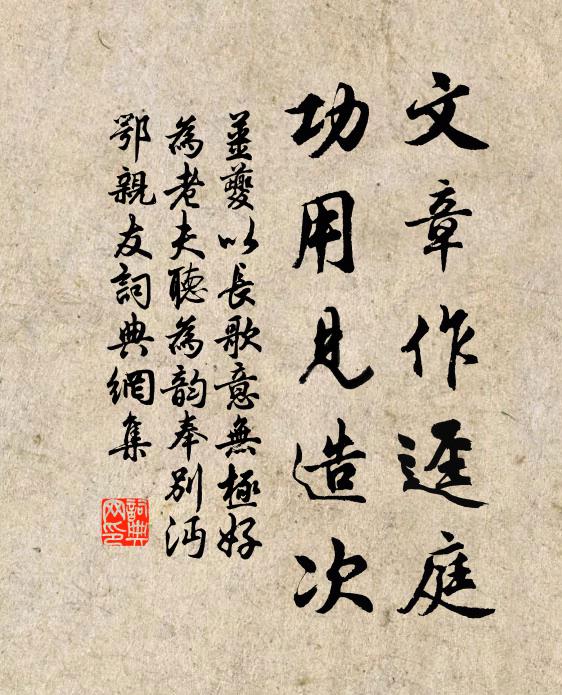 文章作逕庭
功用見造次
薑夔以長歌意無極好
為老夫聽為韵奉別沔
鄂親友詞典網集
詞典网印